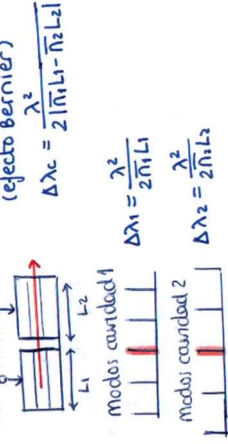 (efecto Bernier)
Δλc = λ² / 2|n̄1L1 - n̄2L2|
L1
L2
modos cavidad 1
Δλ1 = λ² / 2n̄1L1
modos cavidad 2
Δλ2 = λ² / 2n̄2L2